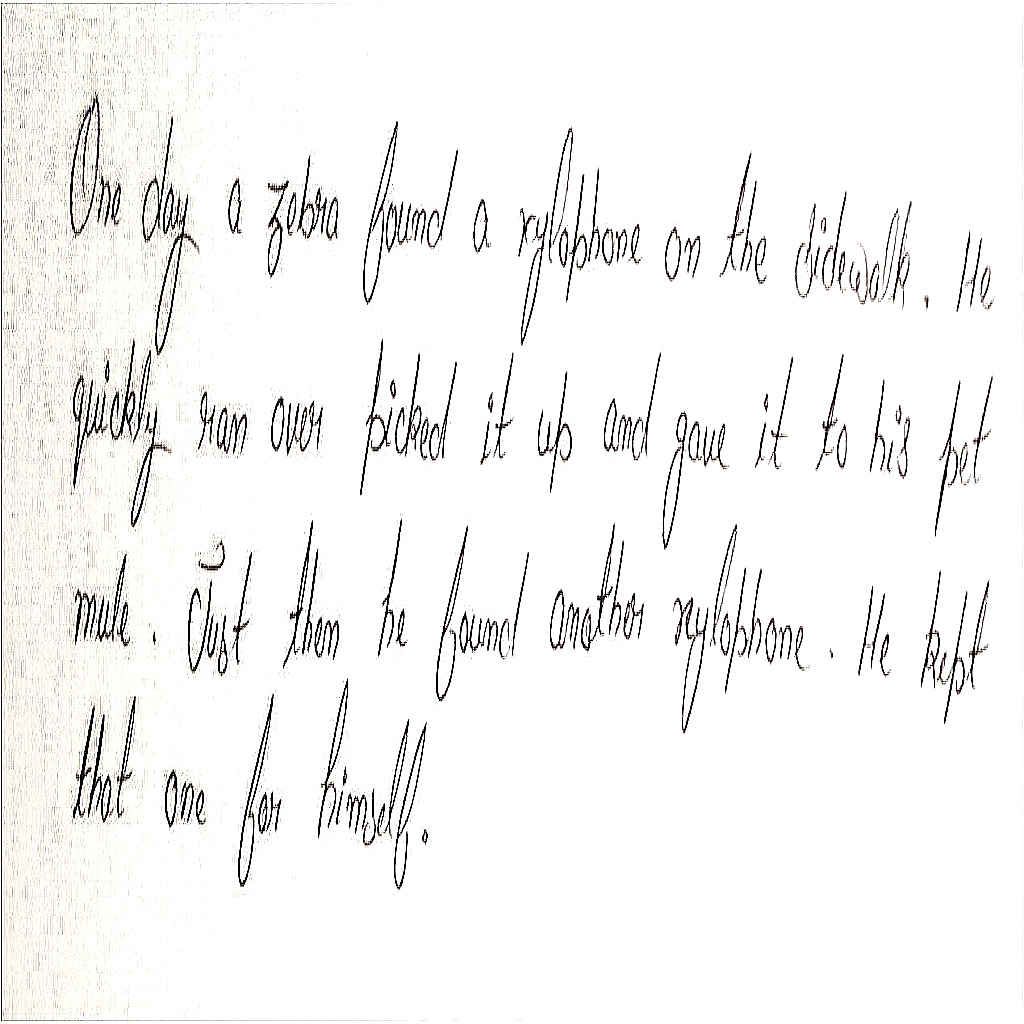 One day a zebra found a xylophone on the sidewalk. He
quickly ran over picked it up and gave it to his pet
mule. Just then he found another xylophone. He kept
that one for himself.